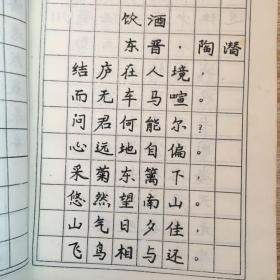 饮酒
东晋·陶潜
结庐在人境，
而无车马喧。
问君何能尔？
心远地自偏。
采菊东篱下，
悠然望南山。
山气日夕佳
飞鸟相与还。